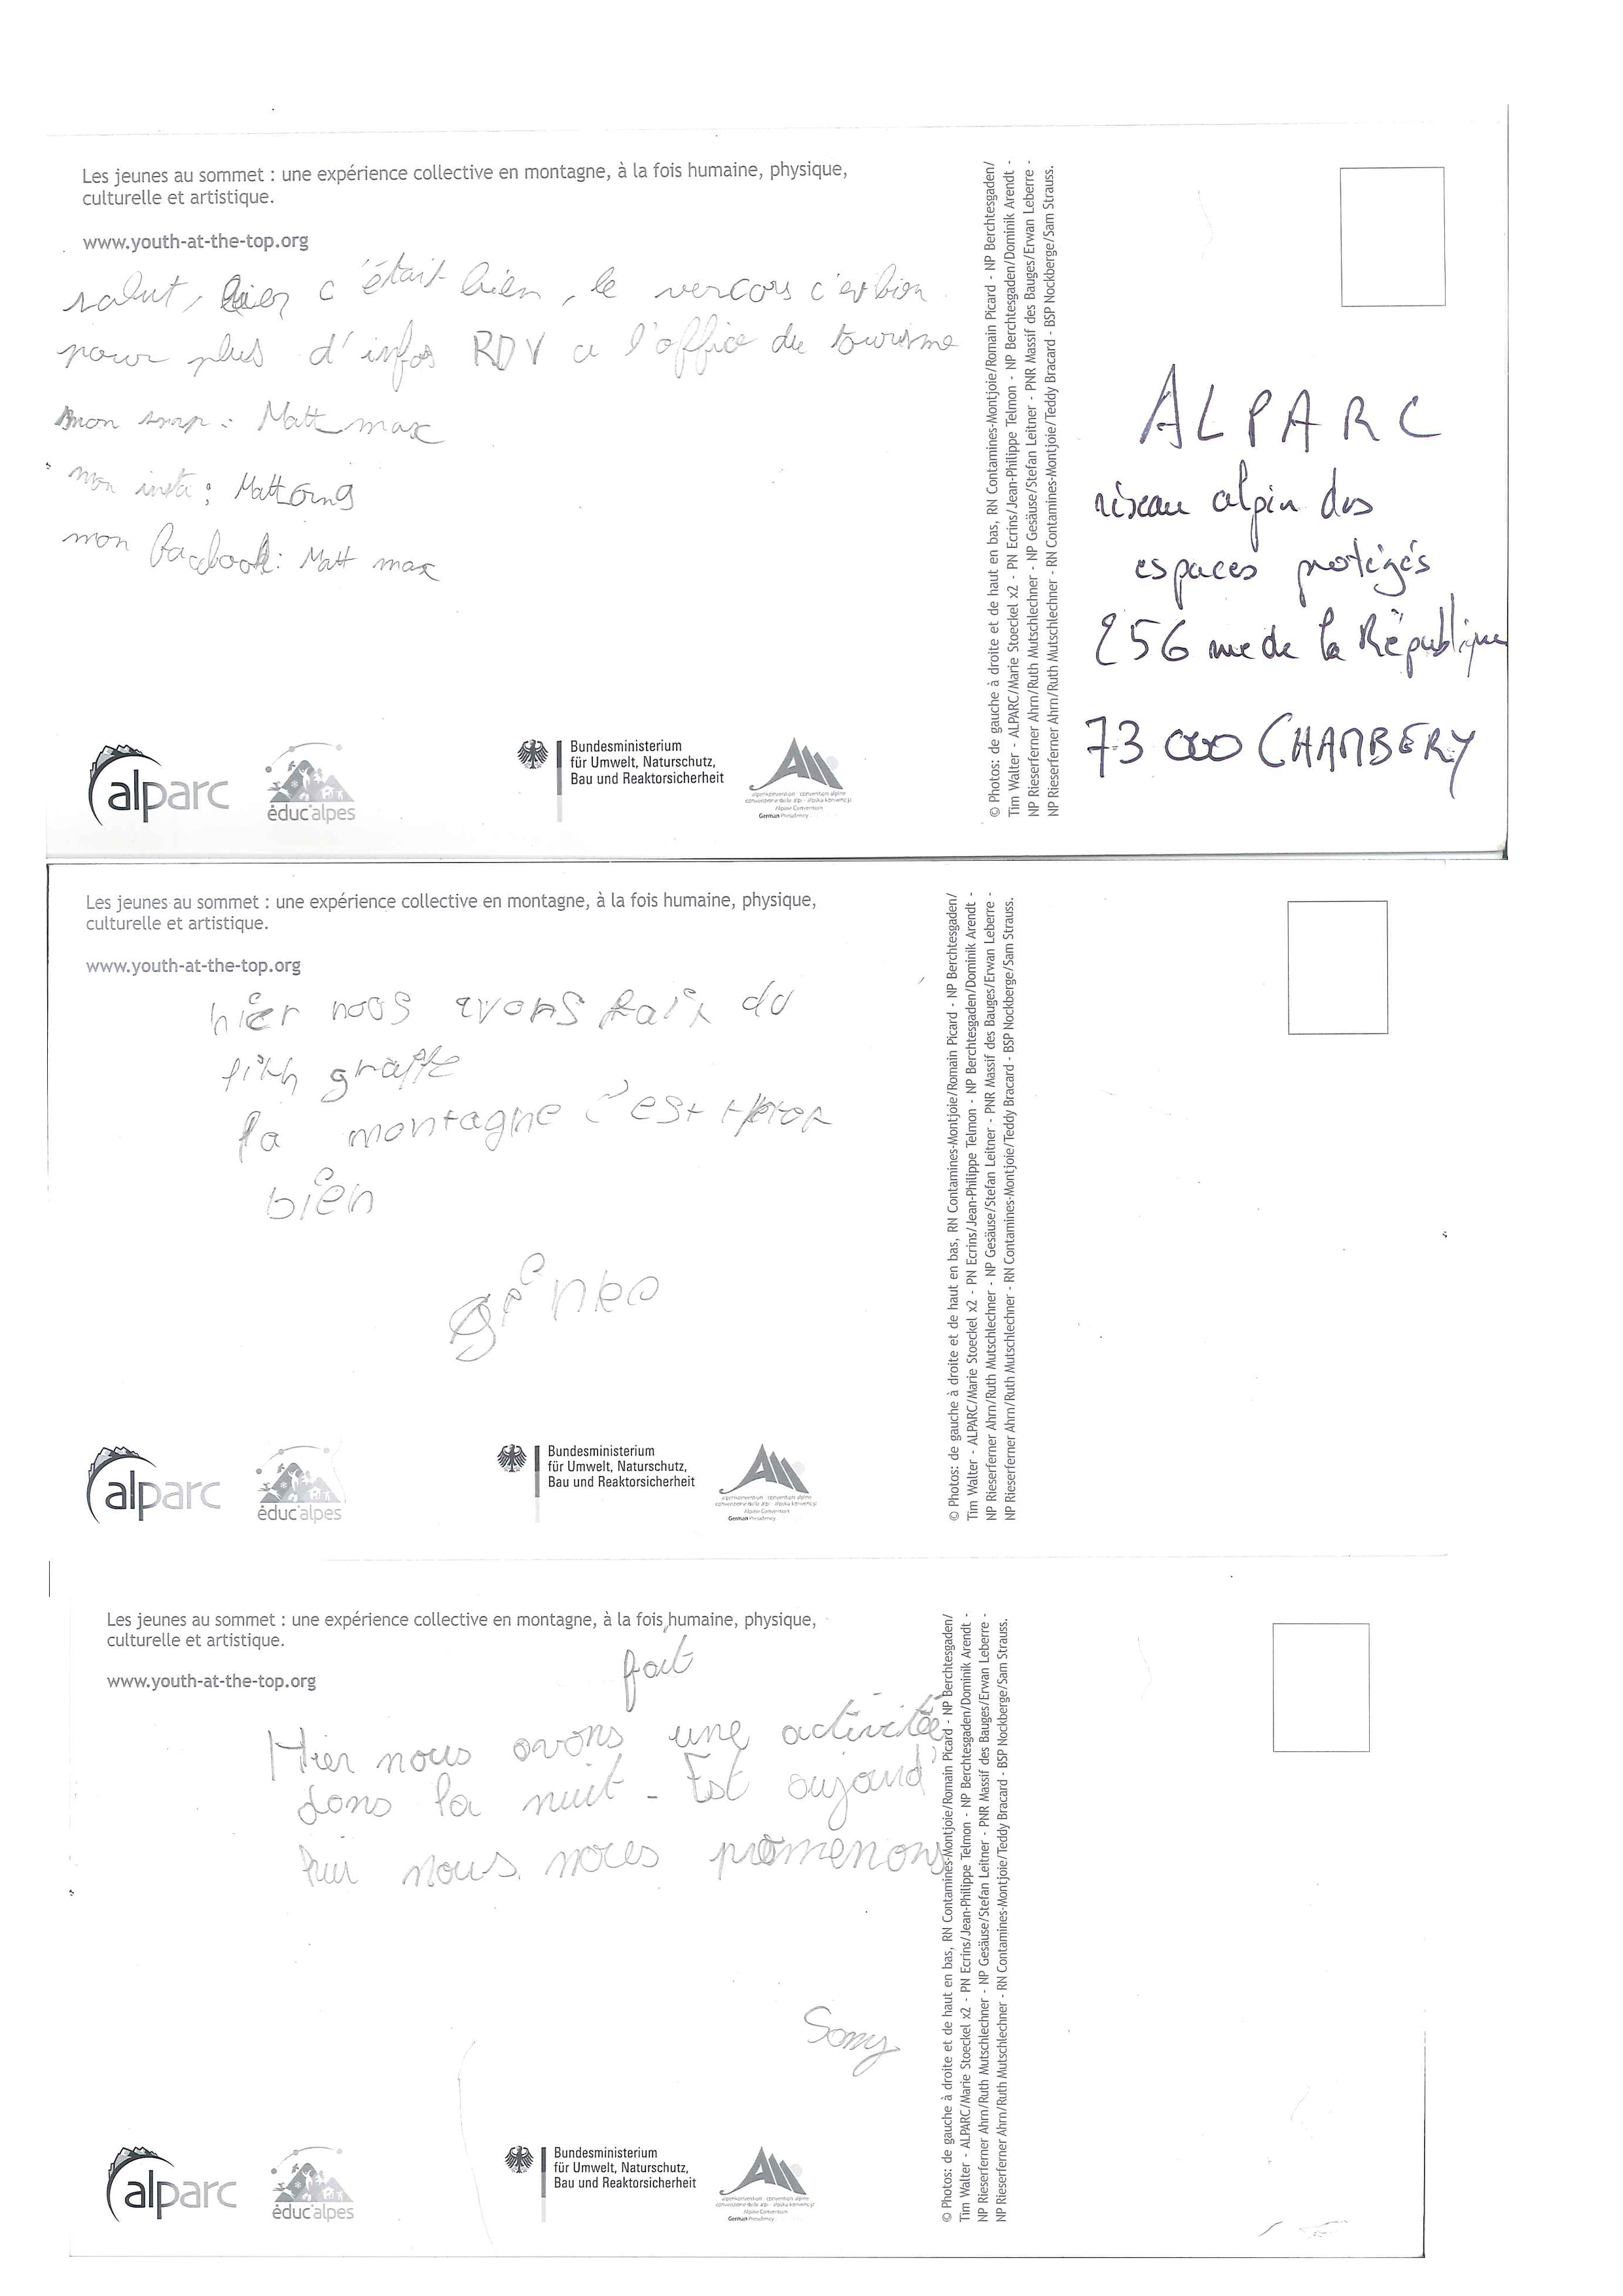 Les jeunes au sommet : une expérience collective en montagne, à la fois humaine, physique,
culturelle et artistique.
www.youth-at-the-top.org
salut, hier c'était bien, le vercors c'est bien
pour plus d'infos RDV a l'office du tourisme
mon snap : Matt max
mon insta : Matt
mon facebook : Matt max
alparc
éduc'alpes
Bundesministerium
für Umwelt, Naturschutz,
Bau und Reaktorsicherheit
German Presidency
© Photos: de gauche à droite et de haut en bas, RN Contamines-Montjoie/Romain Picard - NP Berchtesgaden/
Tim Walter - ALPARC/Marie Stoeckel x2 - PN Ecrins/Jean-Philippe Telmon - NP Berchtesgaden/Dominik Arendt -
NP Rieserferner Ahrn/Ruth Mutschlechner - NP Gesäuse/Stefan Leitner - PNR Massif des Bauges/Erwan Leberre -
NP Rieserferner Ahrn/Ruth Mutschlechner - RN Contamines-Montjoie/Teddy Bracard - BSP Nockberge/Sam Strauss.
ALPARC
réseau alpin des
espaces protégés
256 rue de la République
73 000 CHAMBERY
Les jeunes au sommet : une expérience collective en montagne, à la fois humaine, physique,
culturelle et artistique.
www.youth-at-the-top.org
hier nous avons fait du
graffe
la montagne c'est trop
bien
alparc
éduc'alpes
Bundesministerium
für Umwelt, Naturschutz,
Bau und Reaktorsicherheit
German Presidency
© Photos: de gauche à droite et de haut en bas, RN Contamines-Montjoie/Romain Picard - NP Berchtesgaden/
Tim Walter - ALPARC/Marie Stoeckel x2 - PN Ecrins/Jean-Philippe Telmon - NP Berchtesgaden/Dominik Arendt -
NP Rieserferner Ahrn/Ruth Mutschlechner - NP Gesäuse/Stefan Leitner - PNR Massif des Bauges/Erwan Leberre -
NP Rieserferner Ahrn/Ruth Mutschlechner - RN Contamines-Montjoie/Teddy Bracard - BSP Nockberge/Sam Strauss.
Les jeunes au sommet : une expérience collective en montagne, à la fois humaine, physique,
culturelle et artistique.
www.youth-at-the-top.org
fait
Hier nous avons une activitée
dans la nuit - Est aujourd'
hui nous nous promenons
Samy
alparc
éduc'alpes
Bundesministerium
für Umwelt, Naturschutz,
Bau und Reaktorsicherheit
German Presidency
© Photos: de gauche à droite et de haut en bas, RN Contamines-Montjoie/Romain Picard - NP Berchtesgaden/
Tim Walter - ALPARC/Marie Stoeckel x2 - PN Ecrins/Jean-Philippe Telmon - NP Berchtesgaden/Dominik Arendt -
NP Rieserferner Ahrn/Ruth Mutschlechner - NP Gesäuse/Stefan Leitner - PNR Massif des Bauges/Erwan Leberre -
NP Rieserferner Ahrn/Ruth Mutschlechner - RN Contamines-Montjoie/Teddy Bracard - BSP Nockberge/Sam Strauss.